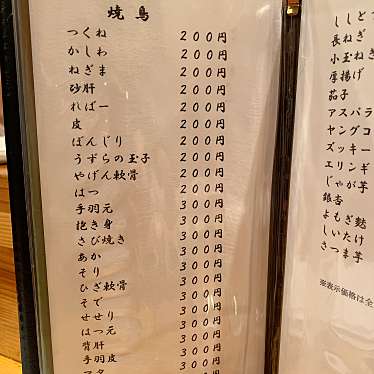 焼鳥
つくね 200円
かしわ 200円
ねぎま 200円
砂肝 200円
ればー 200円
皮 200円
ぼんじり 200円
うずらの玉子 200円
やげん軟骨 200円
はつ 200円
手羽元 300円
抱き身 300円
さび焼き 300円
あか 300円
そり 300円
ひざ軟骨 300円
そで 300円
せせり 300円
はつ元 300円
背肝 300円
手羽皮 300円
ししと
長ねぎ
小玉ねぎ
厚揚げ
茄子
アスパラ
ヤングコ
ズッキー
エリンギ
じゃが芋
銀杏
よもぎ麩
しいたけ
さつま芋
※表示価格は全